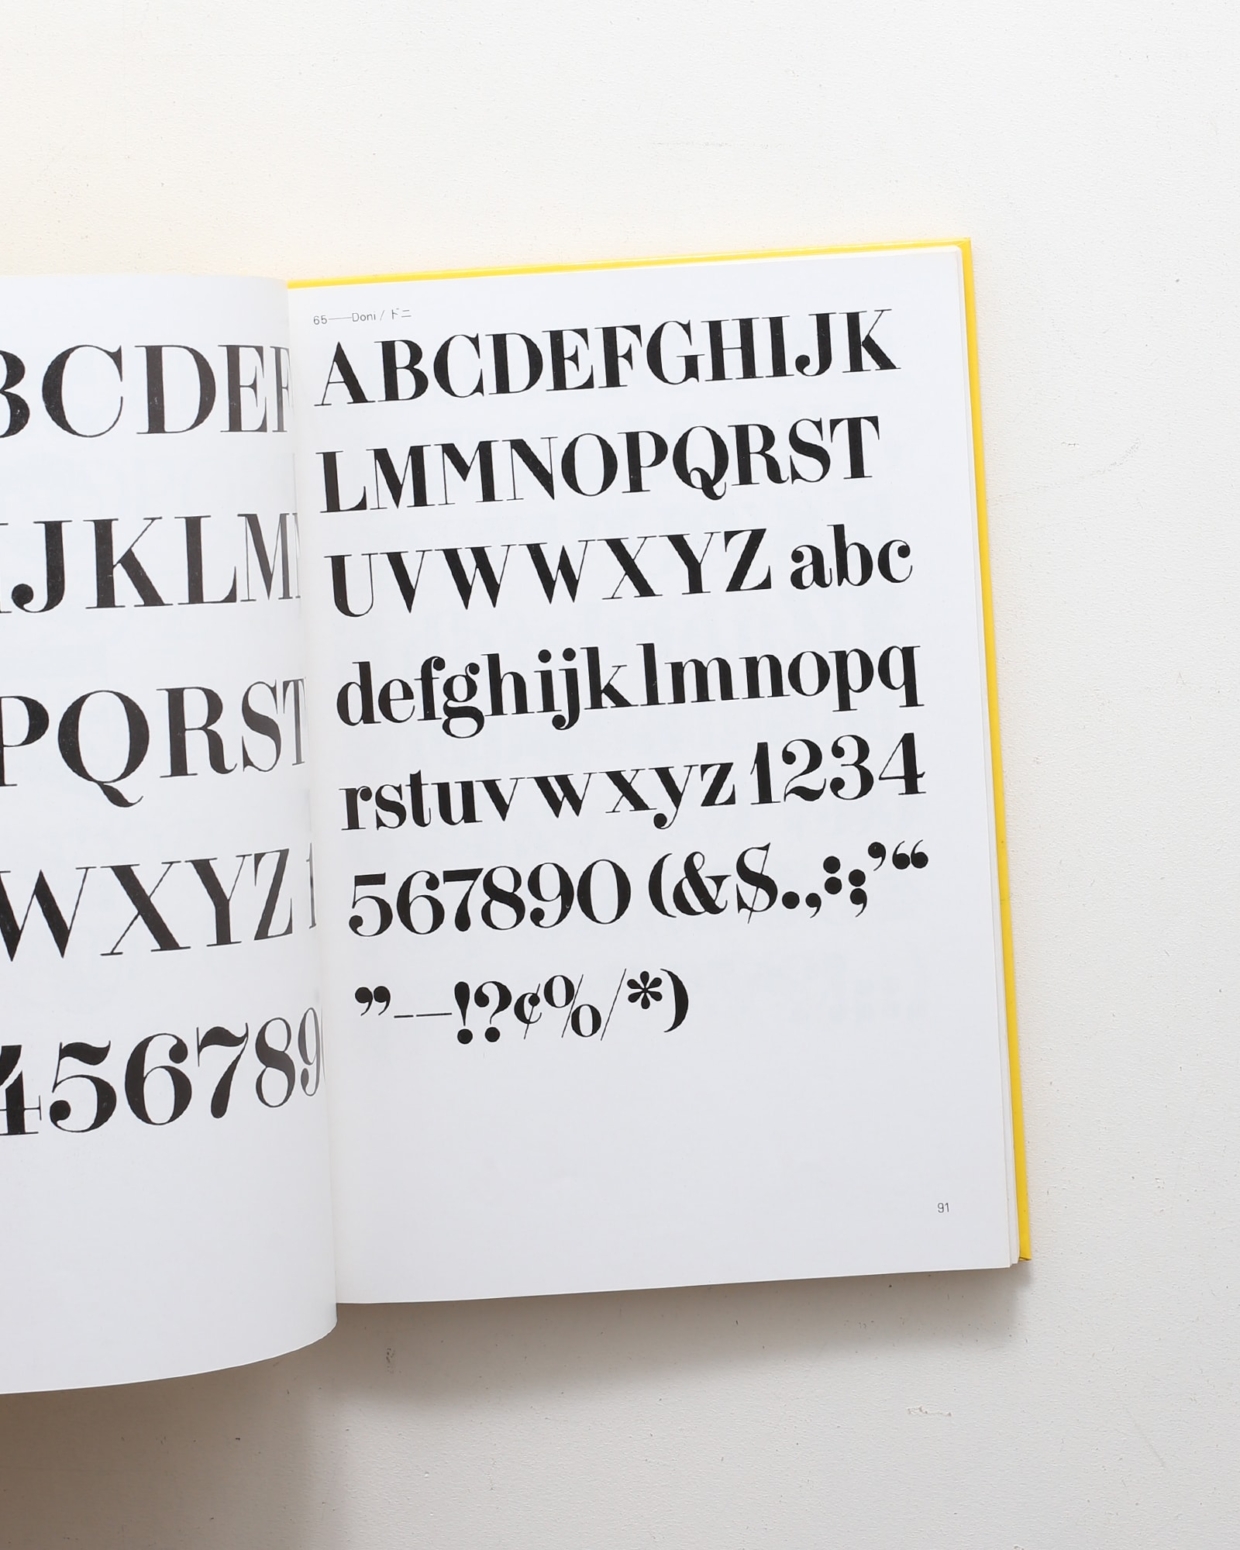 BCDEF
IJKLM
PQRST
WXYZ 1
4567890
65——Doni / ドニ
ABCDEFGHIJK
LMMNOPQRST
UVWWXYZ abc
defghijklmnopq
rstuvwxyz 1234
567890 (&$.,:;’“
”-—!?¢%/*)
91